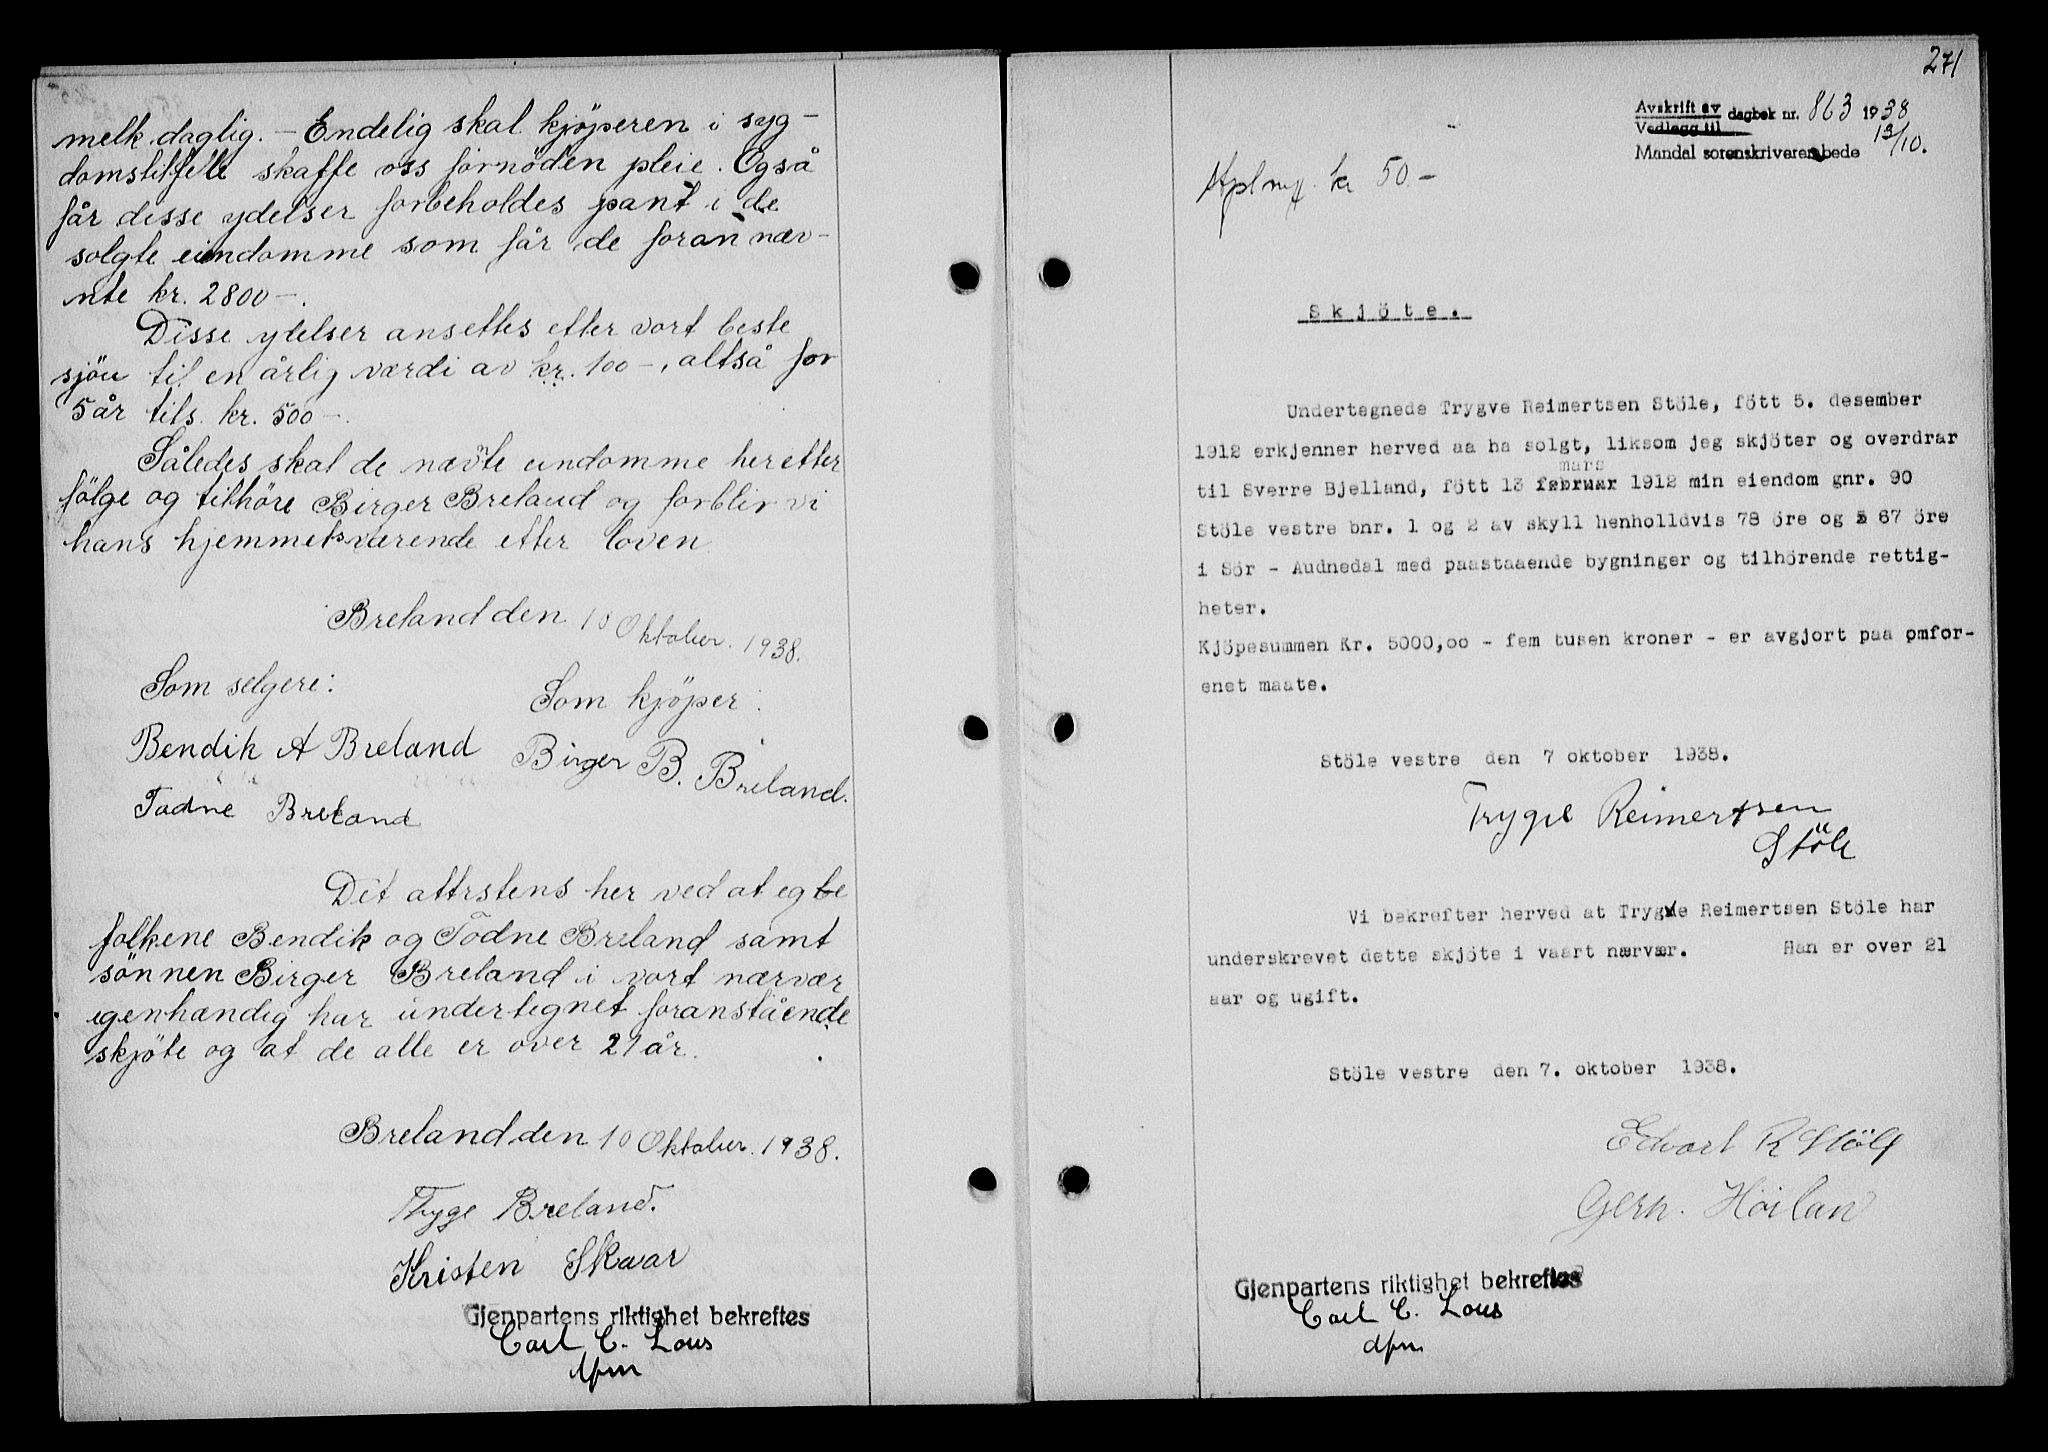 melk daglig. — Endelig skal kjöperen i syg-
domstilfelle skaffe oss fornöden pleie. Også
får disse ydelser forbeholdes pant i de
solgte eiendomme som får de foran næv-
nte kr. 2800 —.
Disse ydelser ansettes efter vort beste
sjön til en årlig værdi av kr. 100 —, altså for
5 år tils. kr. 500 —.
Således skal de nævte eiendomme herefter
fölge og tilhöre Birger Breland og forblir vi
hans hjemmelsværende efter loven.
Breland den 10 Oktober. 1938.
Som selgere: Som kjöper:
Bendik A Breland Birger B. Breland.
Todne Breland
Det attrstens her ved at egte
folkene Bendik og Todne Breland samt
sönnen Birger Breland i vort nærvær
egenhændig har undertegnet foranstående
skjöte og at de alle er over 21 år.
Breland den 10 Oktober. 1938.
Tryge Breland.
Kristen Skaar
Gjenpartens riktighet bekreftes
Carl C. Lous
dfm
271
Avskrift av dagbok nr. 863 1938
Vedlegg til 13/10.
Mandal sorenskriverembede
kr 50.-
Skjöte.
Undertegnede Trygve Reimertsen Stöle, fött 5. desember
1912 erkjenner herved aa ha solgt, liksom jeg skjöter og overdrar
mars
til Sverre Bjelland, fött 13 februar 1912 min eiendom gnr. 90
Stöle vestre bnr. 1 og 2 av skyll henholldvis 78 öre og 67 öre
i Sör - Audnedal med paastaaende bygninger og tilhörende rettig-
heter.
Kjöpesummen Kr. 5000,oo - fem tusen kroner - er avgjort paa omfor-
enet maate.
Stöle vestre den 7 oktober 1938.
Trygve Reimertsen
Stöle
Vi bekrefter herved at Trygve Reimertsen Stöle har
underskrevet dette skjöte i vaart nærvær. Han er over 21
aar og ugift.
Stöle vestre den 7. oktober 1938.
Edvart R Stöle
Gerh. Höiland
Gjenpartens riktighet bekreftes
Carl C. Lous
dfm